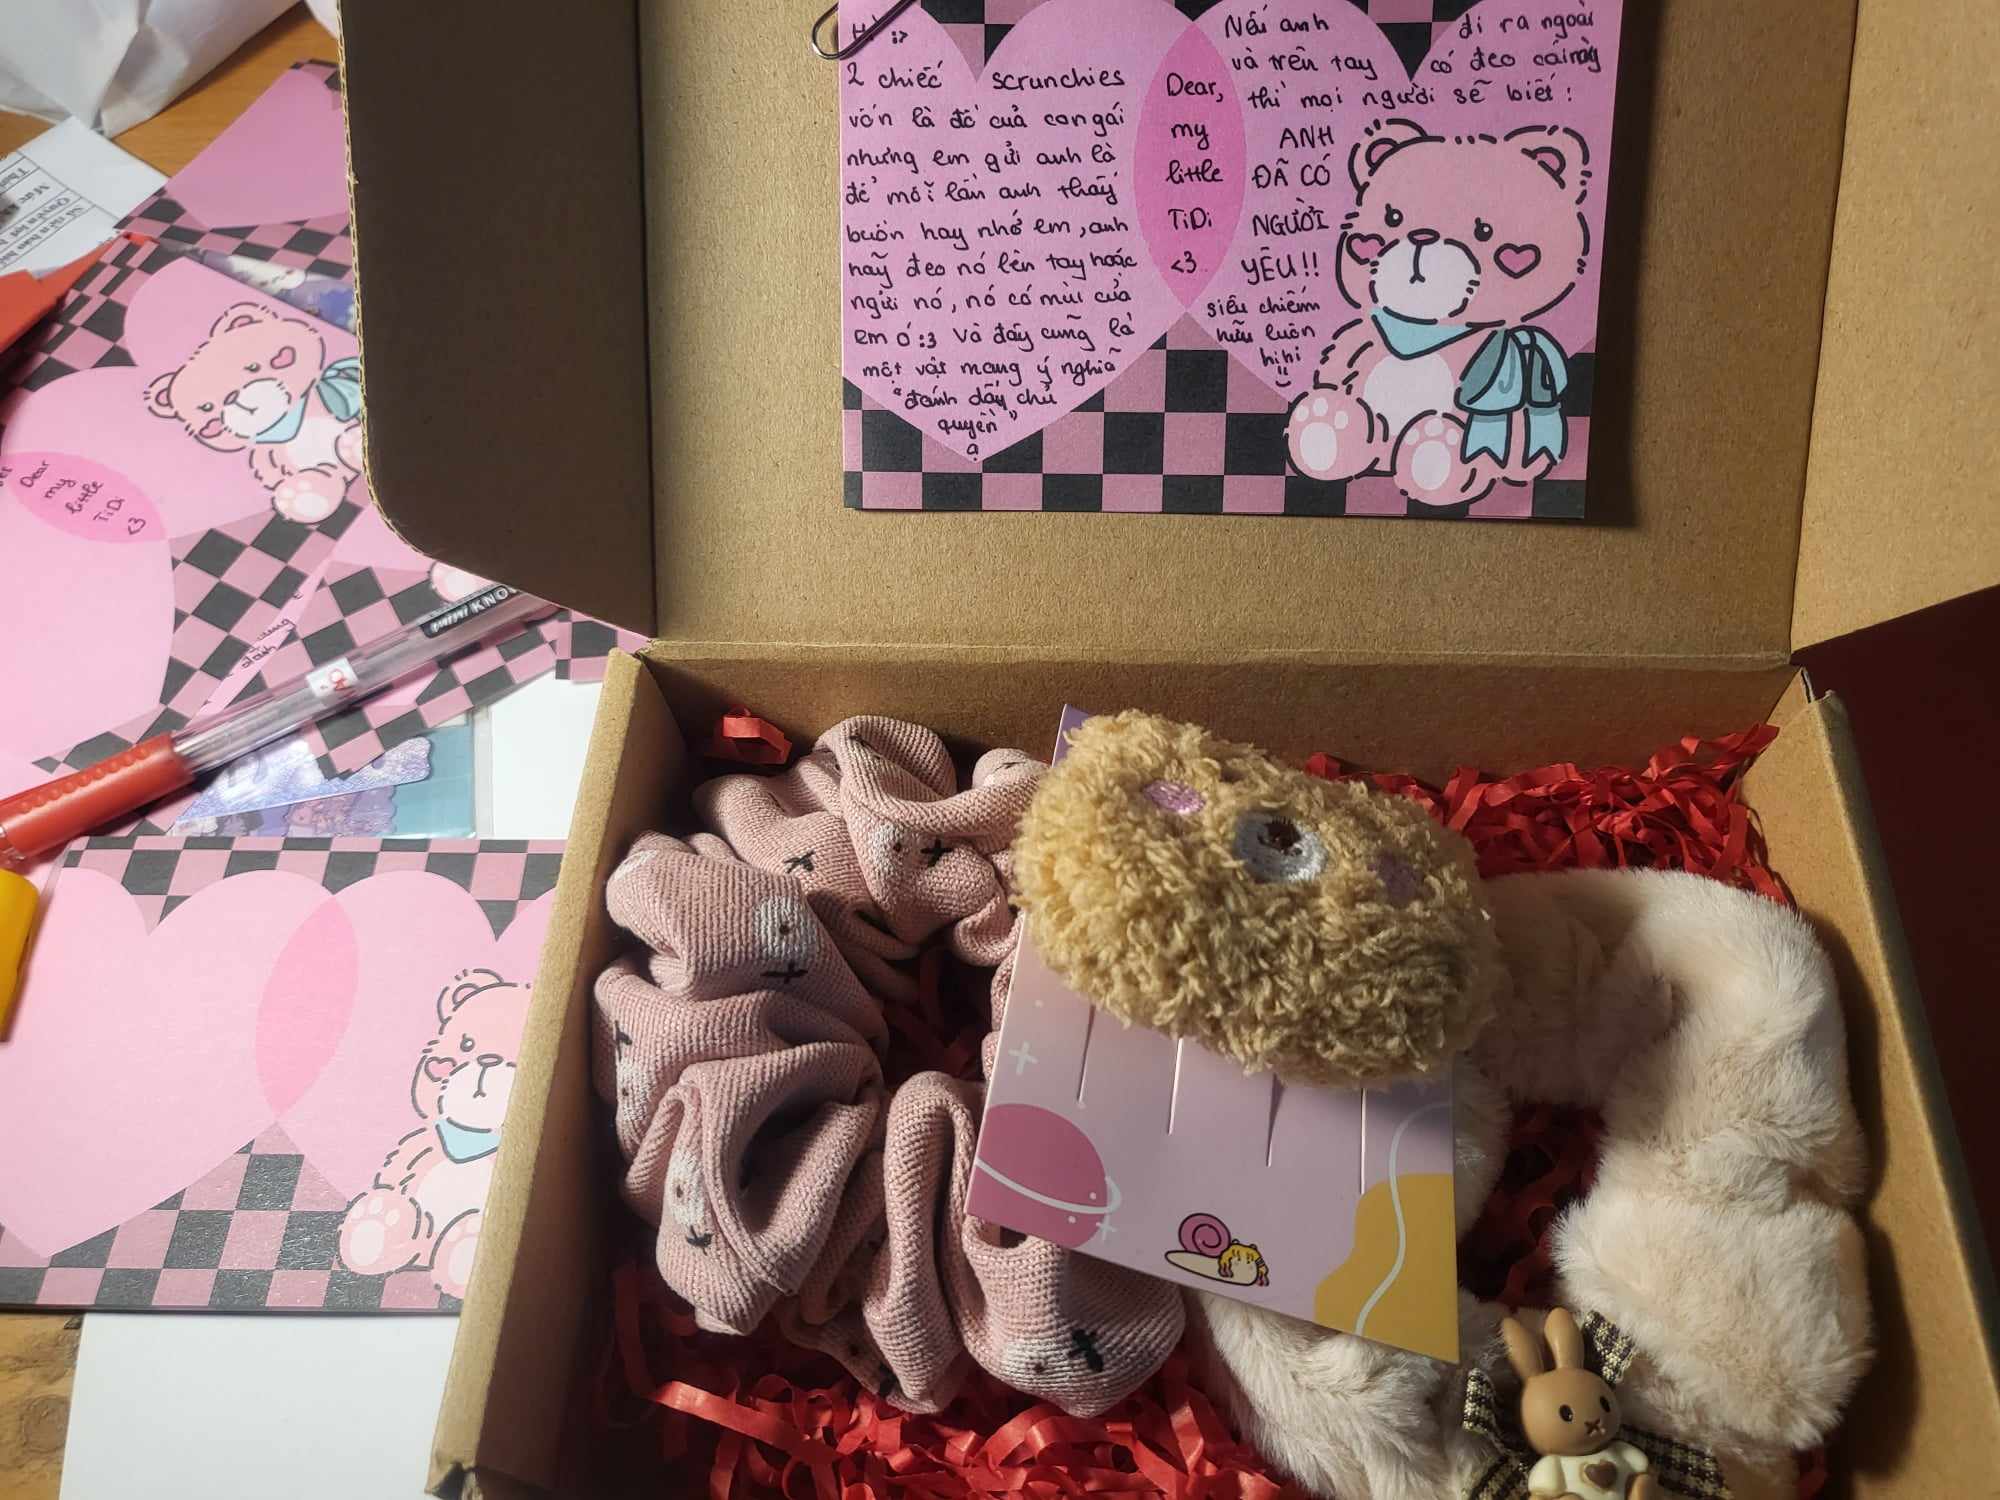 Hi :>
2 chiếc scrunchies
vốn là đồ của con gái
nhưng em gửi anh là
để mỗi lần anh thấy
buồn hay nhớ em, anh
hãy đeo nó lên tay hoặc
ngửi nó, nó có mùi của
em ó :3 Và đây cũng là
một vật mang ý nghĩa
"đánh dấu chủ
quyền"
ạ
Dear,
my
little
TiDi
<3
Nếu anh đi ra ngoài
và trên tay có đeo cái này
thì mọi người sẽ biết:
ANH
ĐÃ CÓ
NGƯỜI
YÊU!!
siêu chiếm
hữu luôn
hihi
Dear
my
little
TiDi
<3